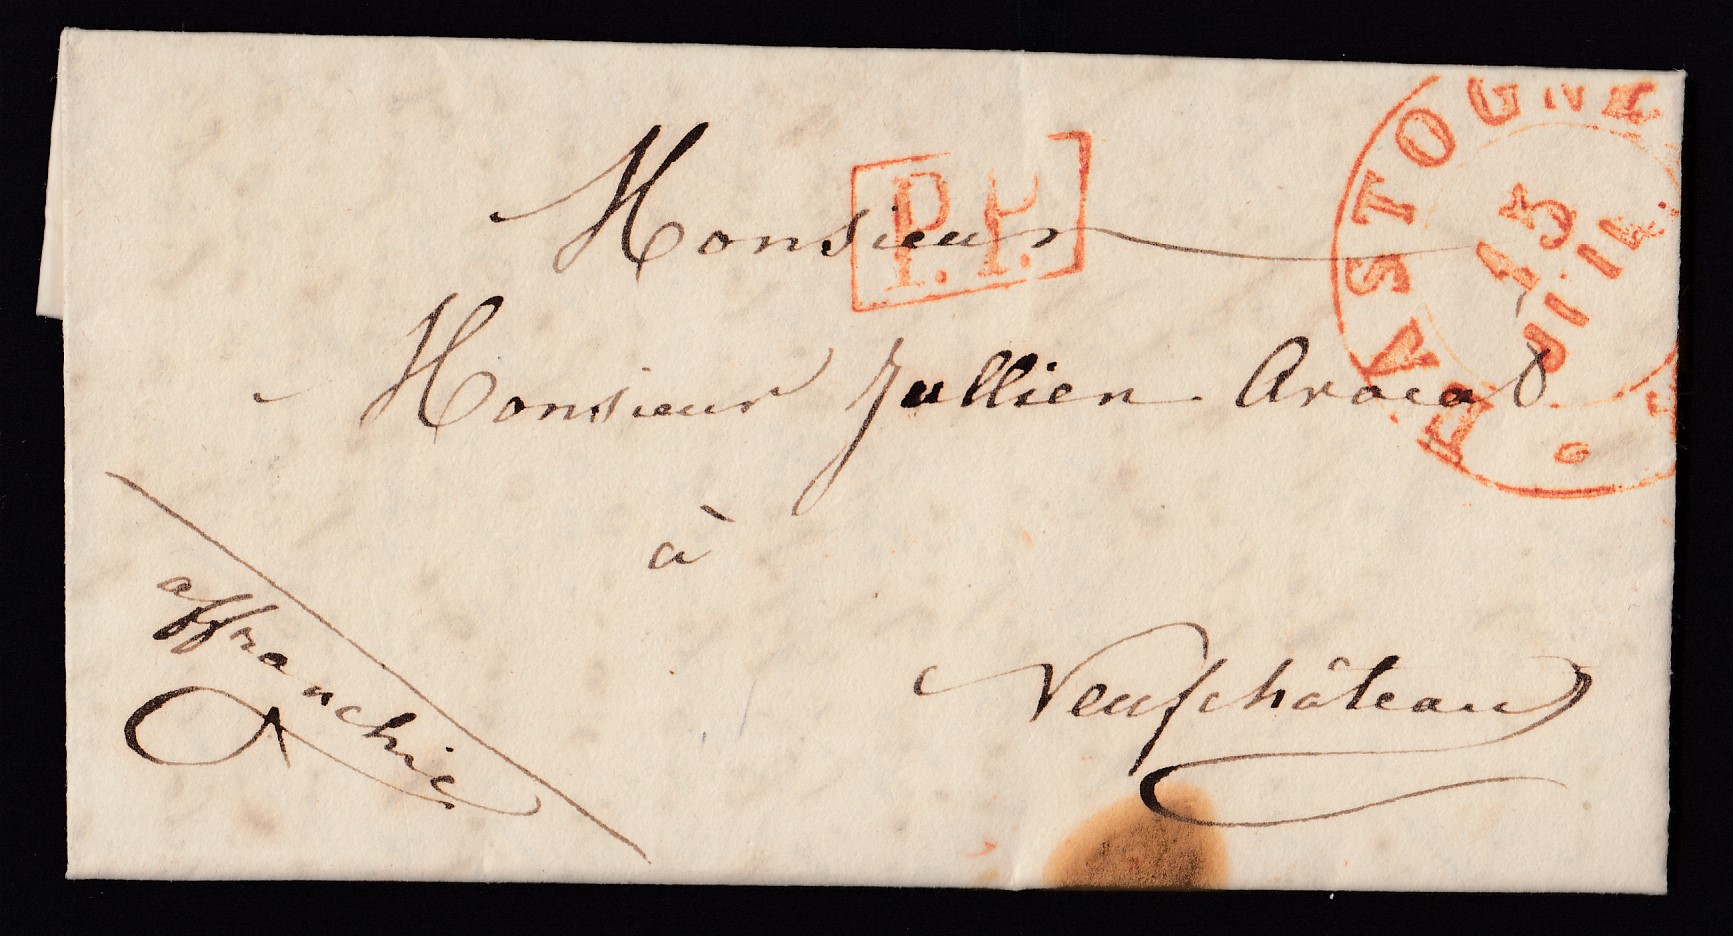 BASTOGNE
13
JUIL
P.P.
Monsieur
Monsieur Jullien Avocat
à
Neufchâteau
affranchie